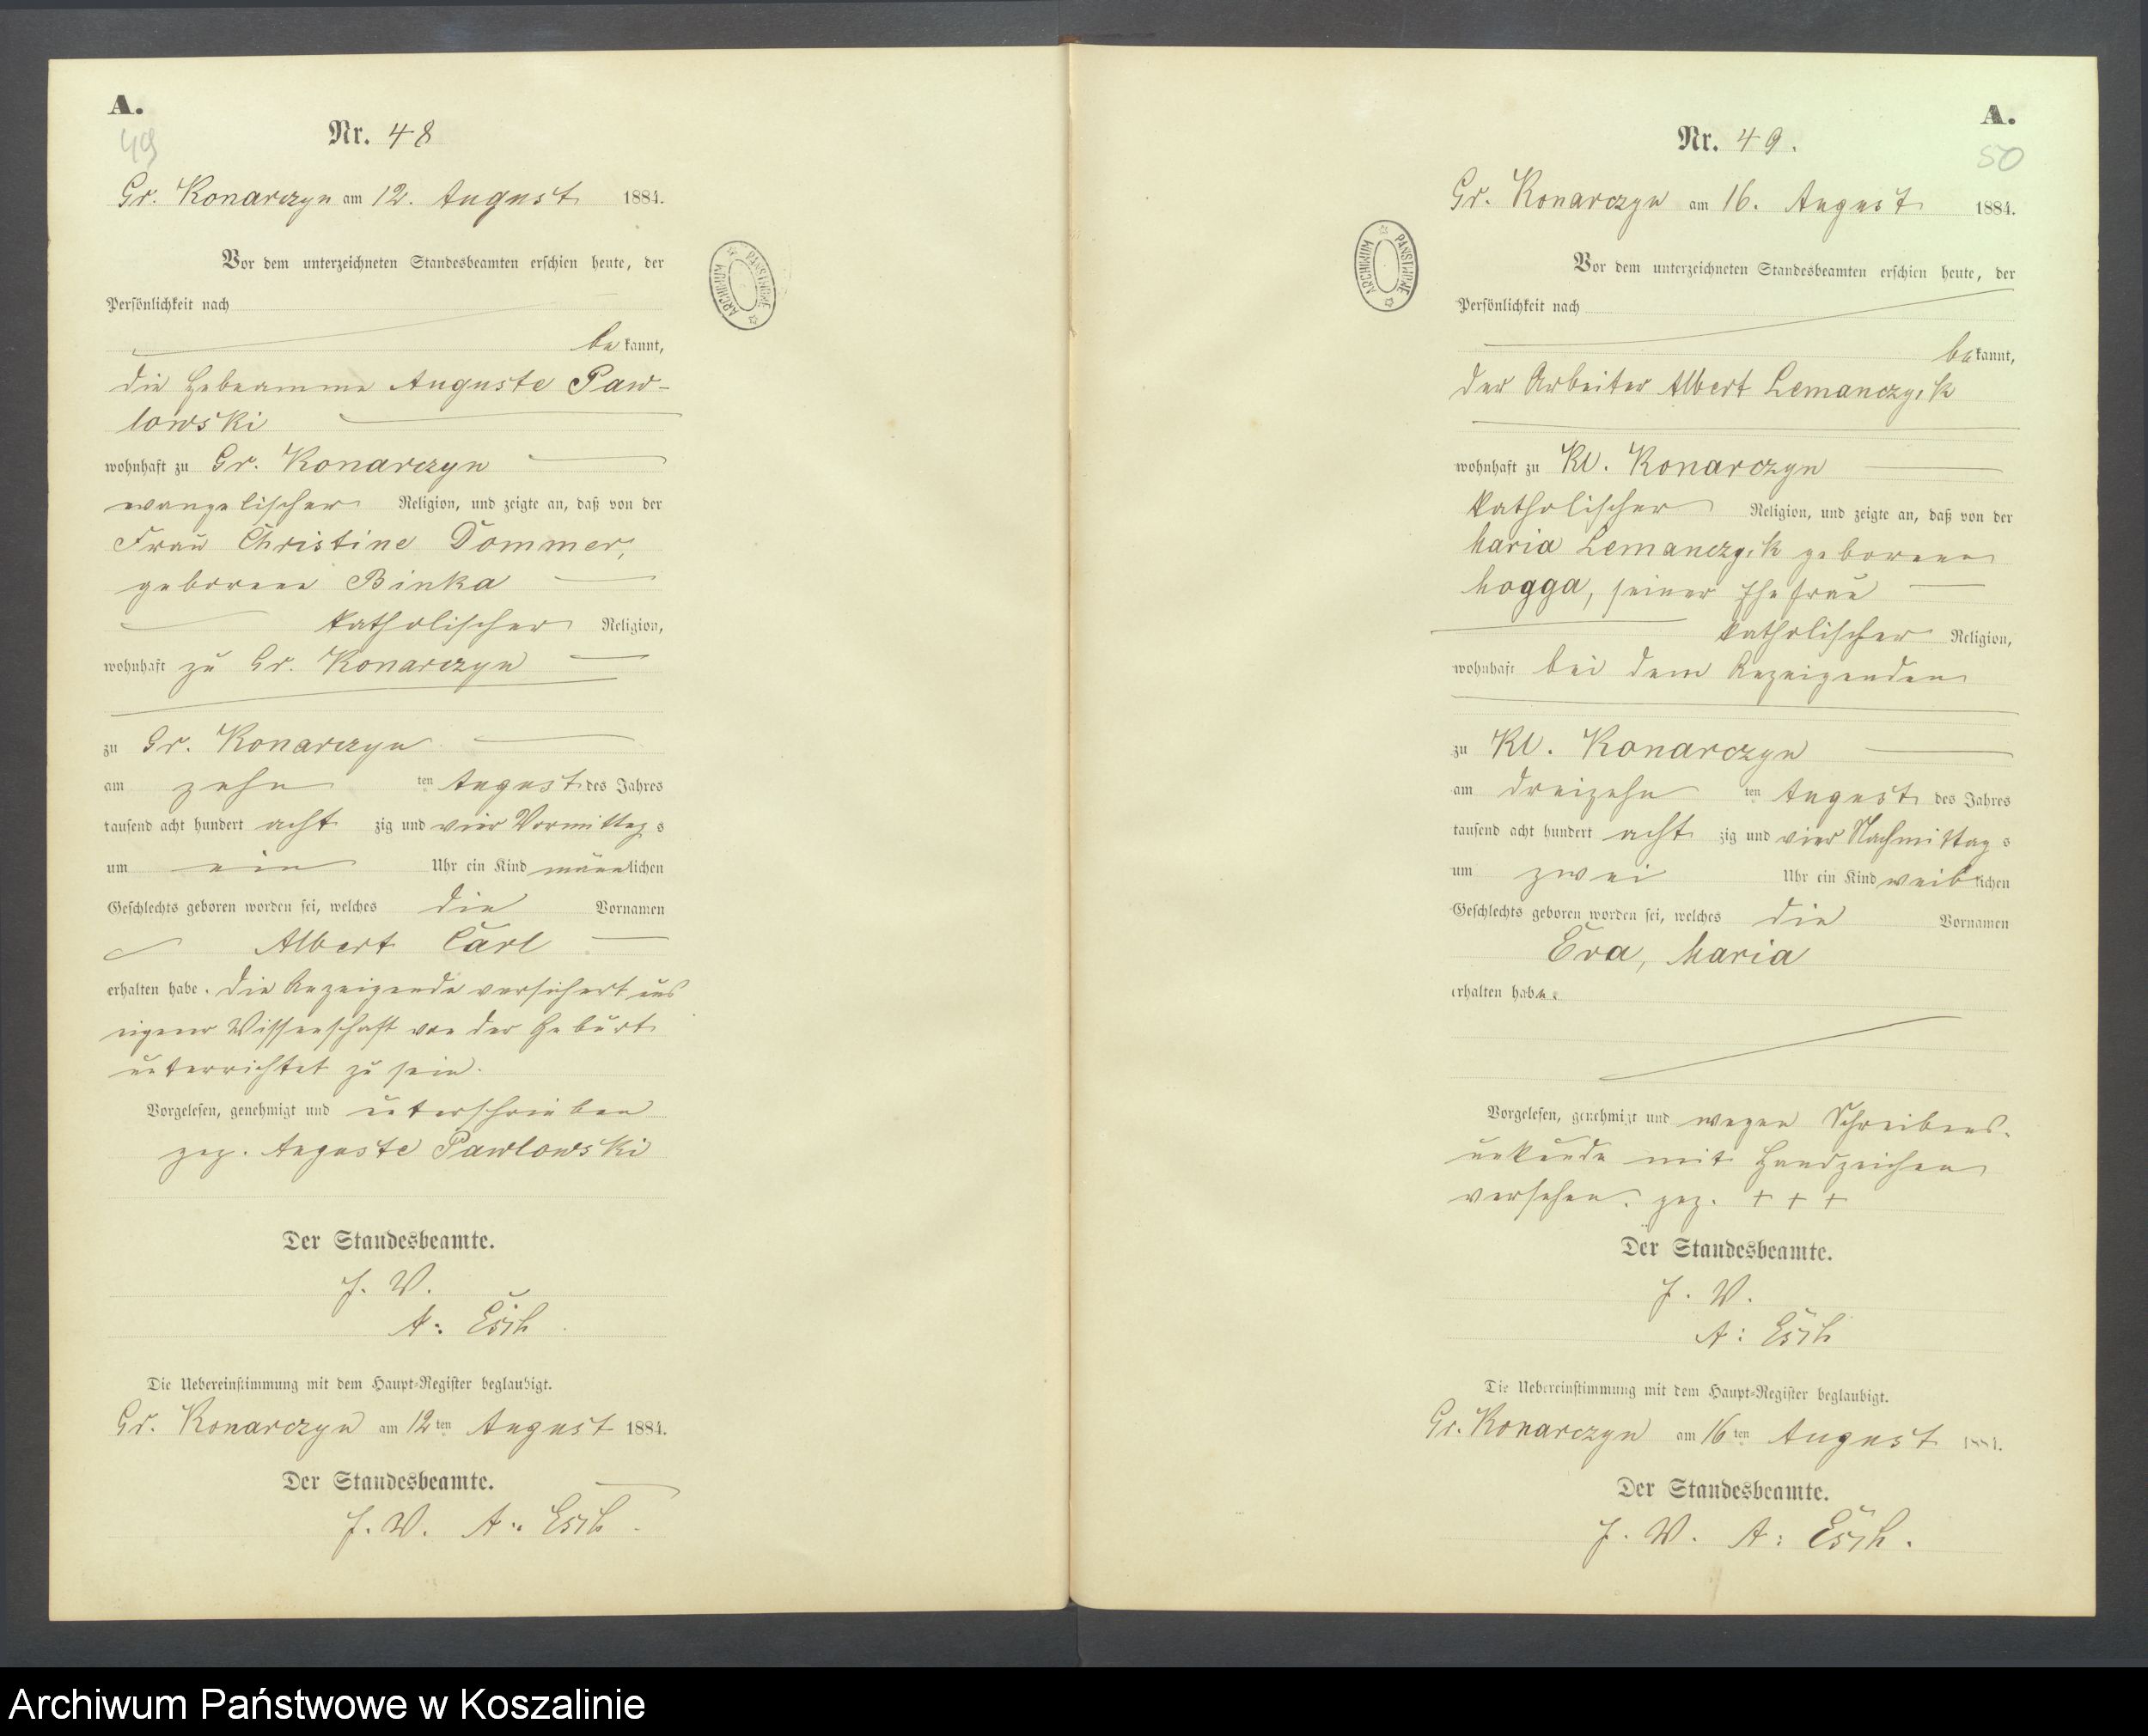 A.
49
Nr. 48
Gr. Konarczyn am 12. August 1884.
Vor dem unterzeichneten Standesbeamten erschien heute, der
Persönlichkeit nach
be kannt,
die Hebeamme Auguste Paw-
lowski
wohnhaft zu Gr. Konarczyn
evangelischer Religion, und zeigte an, daß von der
Frau Christine Dommer,
geborene Binka
katholischer Religion,
wohnhaft zu Gr. Konarczyn
zu Gr. Konarczyn
am zehn ten August des Jahres
tausend acht hundert acht zig und vier Vormittag s
um ein Uhr ein Kind männlichen
Geschlechts geboren worden sei, welches die Vornamen
Albert Carl
erhalten habe. Die Anzeigende versichert aus
eigener Wissenschaft von der Geburt
unterrichtet zu sein.
Vorgelesen, genehmigt und unterschrieben
gez. Auguste Pawlowski
Der Standesbeamte.
J. V.
A. Esch
Die Uebereinstimmung mit dem Haupt-Register beglaubigt.
Gr. Konarczyn am 12ten August 1884.
Der Standesbeamte.
J. V. A. Esch.
ARCHIWUM PAŃSTWOWE
A.
50
Nr. 49.
Gr. Konarczyn am 16. August 1884.
Vor dem unterzeichneten Standesbeamten erschien heute, der
Persönlichkeit nach
be kannt,
der Arbeiter Albert Lemanczyk
wohnhaft zu Kl. Konarczyn
katholischer Religion, und zeigte an, daß von der
Maria Lemanczyk geborene
Mogga, seiner Ehefrau
katholischer Religion,
wohnhaft bei dem Anzeigenden
zu Kl. Konarczyn
am dreizehn ten August des Jahres
tausend acht hundert acht zig und vier Nachmittag s
um zwei Uhr ein Kind weiblichen
Geschlechts geboren worden sei, welches die Vornamen
Eva, Maria
erhalten habe.
Vorgelesen, genehmigt und wegen Schreibens-
unkunde mit Handzeichen
versehen. gez. + + +
Der Standesbeamte.
J. V.
A: Esch
Die Uebereinstimmung mit dem Haupt-Register beglaubigt.
Gr. Konarczyn am 16ten August 1884.
Der Standesbeamte.
J. V. A: Esch.
ARCHIWUM PAŃSTWOWE
Archiwum Państwowe w Koszalinie